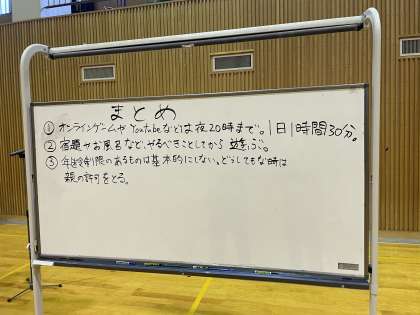 まとめ
① オンラインゲームやYoutubeなどは夜20時まで。1日1時間30分。
② 宿題やお風呂など、やるべきことしてから遊ぶ。
③ 年齢制限のあるものは基本的にしない。どうしてもな時は
親の許可をとる。